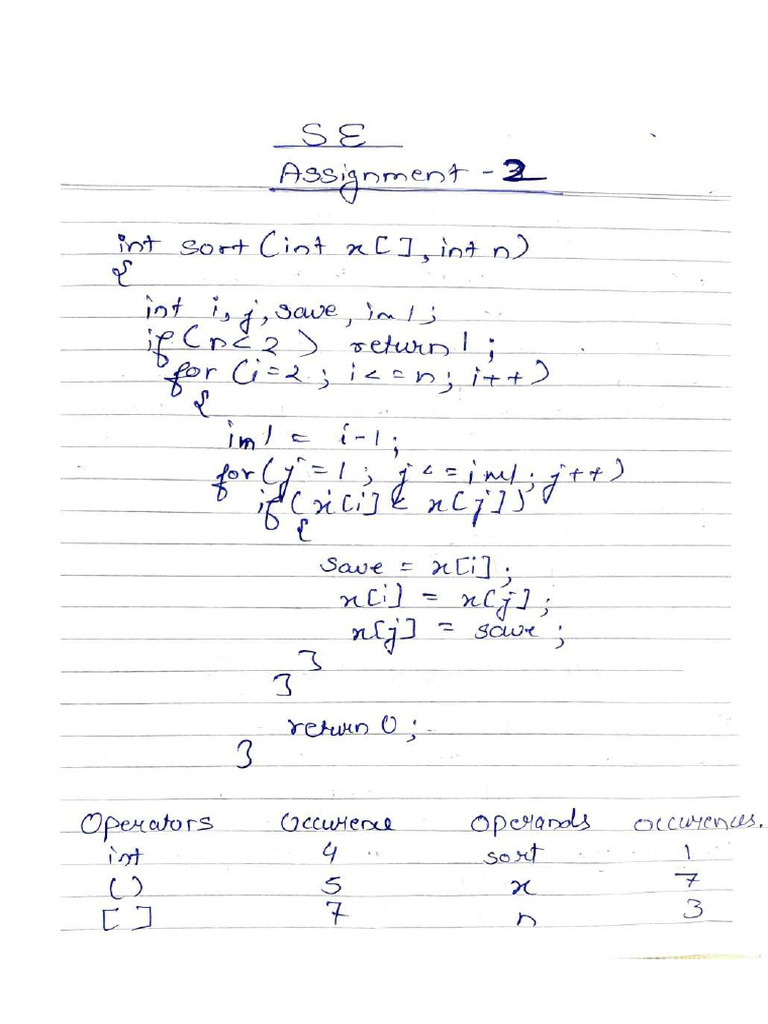 SE
Assignment - 2
int sort (int x[], int n)
{
int i, j, save, im1;
if (n < 2) return 1;
for (i=2; i<=n; i++)
{
im1 = i-1;
for (j=1; j<=im1; j++)
if (x[i] < x[j])
{
save = x[i];
x[i] = x[j];
x[j] = save;
}
}
return 0;
}
Operators Occurence Operands Occurences.
int 4 sort 1
() 5 x 7
[] 7 n 3